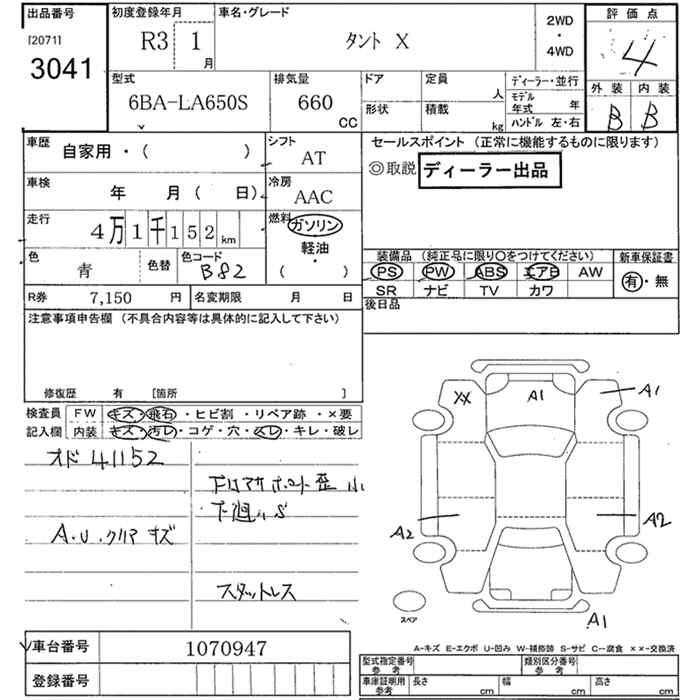 出品番号
[20711]
3041
初度登録年月
R3 1 月
車名・グレード
タント X
2WD
・
4WD
評価点
4
外装 内装
B B
型式
6BA-LA650S
排気量
660 CC
ドア
形状
定員 人
積載 kg
ディーラー・並行
モデル
年式 年
ハンドル 左・右
車歴 自家用・( )
シフト AT
車検 年 月( 日)
冷房 AAC
走行 4万1千152km
燃料
ガソリン
軽油
・
( )
色 青 色替
色コード B82
R券 7,150 円
名変期限 月 日
セールスポイント (正常に機能するものに限ります)
◎取説 ディーラー出品
装備品 (純正品に限り〇をつけてください)
PS PW ABS エアB AW
SR ナビ TV カワ
新車保証書
有・無
後日品
注意事項申告欄 (不具合内容等は具体的に記入して下さい)
修復歴 有 [箇所 ]
検査員
記入欄
FW キズ・飛石・ヒビ割・リペア跡・×要
内装 キズ・汚レ・コゲ・穴・スレ・キレ・破レ
オド 41152
A.U.クリア キズ
下廻りS
スタットレス
XX
A1
A1
A2
A2
A1
スペア
A-キズ E-エクボ U-凹み W-補修跡 S-サビ C-腐食 ××-交換済
車台番号 1070947
登録番号
型式指定番号
参考
類別区分番号
参考
車庫証明用
参考
長さ cm
幅 cm
高さ cm